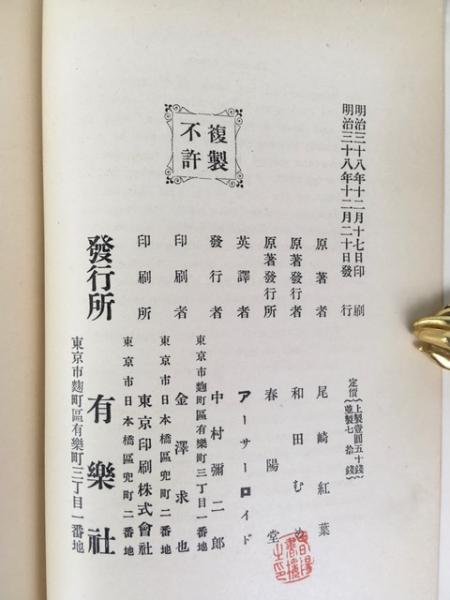 明治三十八年十二月十七日印刷
明治三十八年十二月二十日發行
定價
上製壹圓五十錢
並製七拾錢
複製
不許
原著者 尾崎紅葉
原著發行者 和田む
原著發行所 春陽堂
英譯者 アーサーロイド
東京市麴町區有樂町三丁目一番地
發行者 中村彌二郎
東京市日本橋區兜町二番地
印刷者 金澤求也
東京市日本橋區兜町二番地
印刷所 東京印刷株式會社
東京市麴町區有樂町三丁目一番地
發行所 有樂社